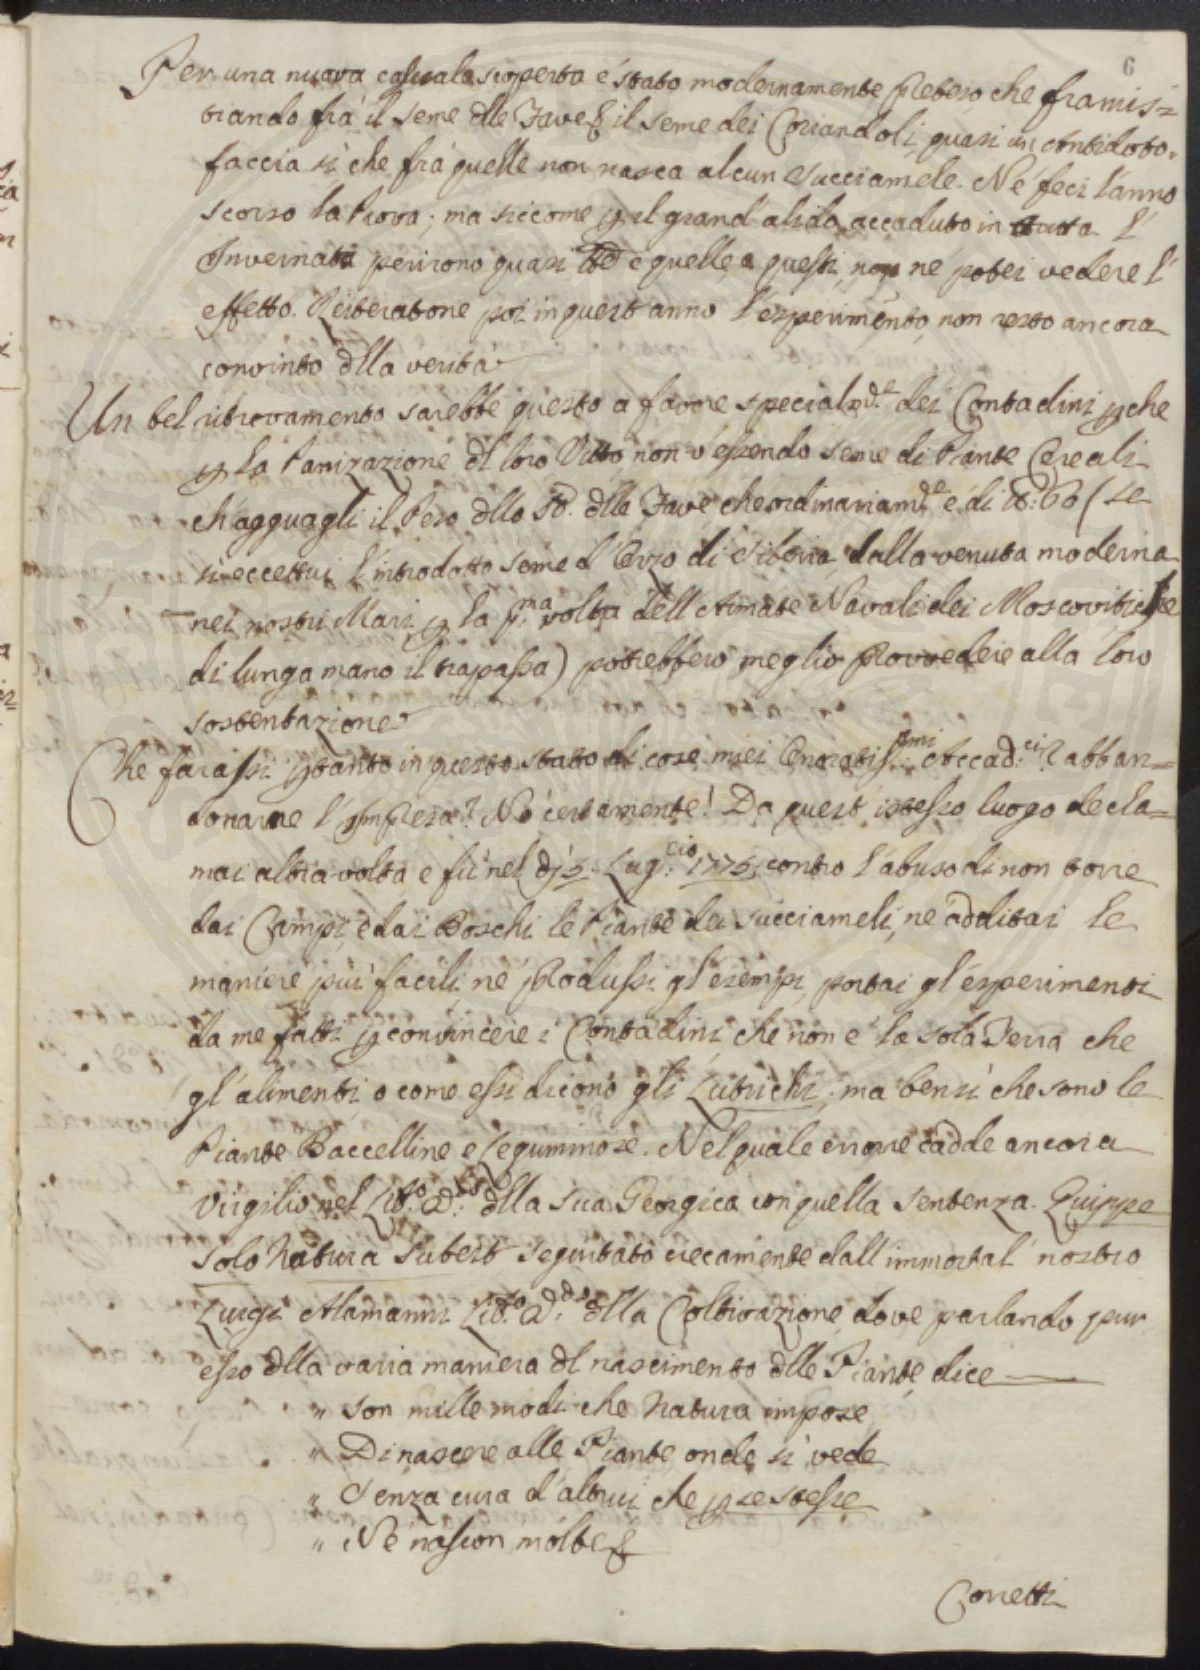 6
Per una nuova casuale scoperta è stato modernamente preteso che framis=
tiando frà il seme dlle Fave il seme dei Coriandoli, quasi un antidoto
faccia sì che frà quelle non nasca alcun succiamele. Nè feci l'anno
scorso la Prova; ma siccome p il grand'alido accaduto in tutta l'
Invernata perirono quasi e quelle, e questi, non nè potei vedere l'
effetto. Reiteratone poi in quest'anno l'esperimento, non resto ancora
convinto dlla verità
Un bel ritrovamento sarebbe questo a favore special.e dei Contadini pche
p la Panizazione dl loro Vitto, non v'essendo seme di Piante Cereali
ch'agguagli il Peso dllo dlle Fave, che ordinariam.e è di 60 (se
si eccettui l'introdotto seme d'Orzo di Siberia, dalla venuta moderna
nei nostri Mari p la p.ma volta dell'Armate Navali dei Moscoviti che
di lunga mano il trapassa) potrebbero meglio provvedere alla loro
sostentazione
Che farassi ptanto in questo stato di cose miei Onoratiss.mi Accad.ci? abban=
donarne l'Impresa? Nò certamente! Da quest'istesso luogo decla=
mai altra volta e fù nel dj 5. Lug.lio 1775, contro l'abuso di non torre
dai Campi, e dai Boschi le Piante dei succiameli, ne additai le
maniere più facili, nè produssi gl'esempi, portai gl'esperimenti
da me fatti p convincere i Contadini che non è la sola Terra che
gl'alimenti o come essi dicono gli Lutrichi; ma bensì che sono le
Piante Baccelline e Leguminose. Nel quale errore cadde ancora
Virgilio nel Lib.o 2.do dlla sua Georgica con quella sentenza. Quippe
solo Natura subest seguitato ciecamente dall'immortal' nostro
Luigi Alamanni Lib.o 2.do dlla Coltivazione, dove parlando pur
esso dlla varia maniera dl nascimento dlle Piante, dice
" Son mille modi che Natura impose
" Di nascere alle Piante, onde si vede
" Senza cura d'altrui che p se stesse
" Nè nascon molte &
Corretti